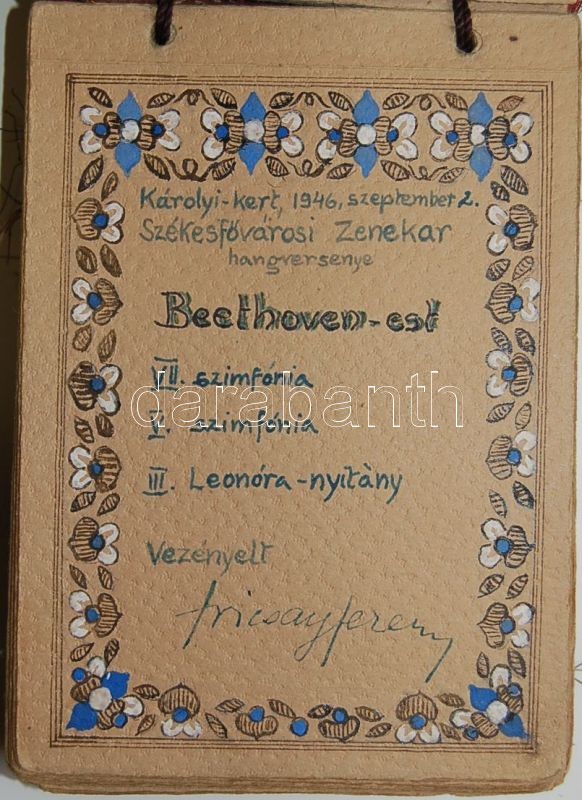 Károlyi-kert, 1946, szeptember 2.
Székesfővárosi Zenekar
hangversenye
Beethoven-est
VII. szimfónia
darabanth
V. szimfónia
III. Leonóra-nyitàny
Vezényelt
Fricsay Ferenc